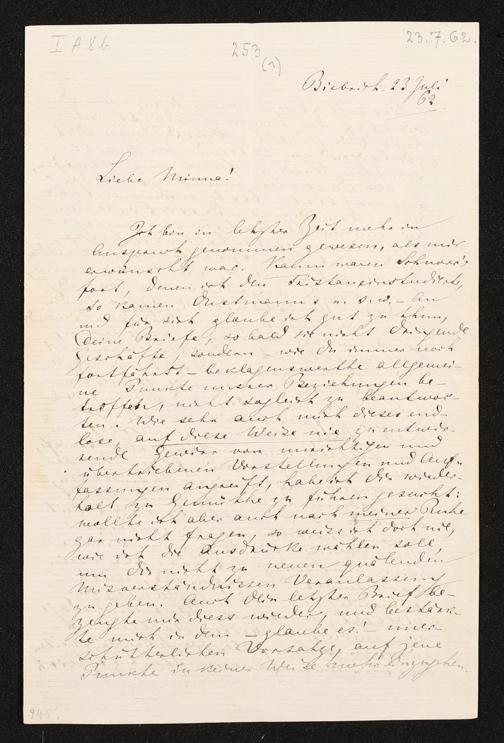 I A 8 b
253
(1)
23.7.62.
Biebrich. 23 Juli
62.
Liebe Minna!
Ich bin in letzter Zeit mehr in
Anspruch genommen gewesen, als mir
erwünscht war. Kaum waren Schnorr's
fort, denen ich den Tristan einstudirte,
so kamen Dustmann's u. s. w. – An
und für sich glaube ich gut zu thun,
Deine Briefe, so bald sie nicht dringende
Geschäfte, sondern – wie Du immer noch
fortfährst – beklagenswerthe allgemei-
ne Punkte unsrer Beziehungen be-
treffen, nicht sogleich zu beantwor-
ten. Wie sehr auch mich dieses end-
lose, auf diese Weise nie zu entwir-
rende Gewirr von unrichtigen und
übertriebenen Vorstellungen und Auf-
fassungen angreift, habe ich Dir wieder-
holt zu Gemüthe zu führen gesucht:
wollte ich aber auch nach meiner Ruhe
gar nicht fragen, so weiss ich doch nie,
wie ich die Ausdrücke wählen soll,
um Dir nicht zu neuen quälenden
Misverständnissen Veranlassung
zu geben. Auch Dein letzter Brief be-
zeugte mir diess wieder, und bestärk-
te mich in dem – glaube es! – uner-
schütterlichen Vorsatze, auf jene
Punkte in keiner Weise mehr einzugehen.
945.